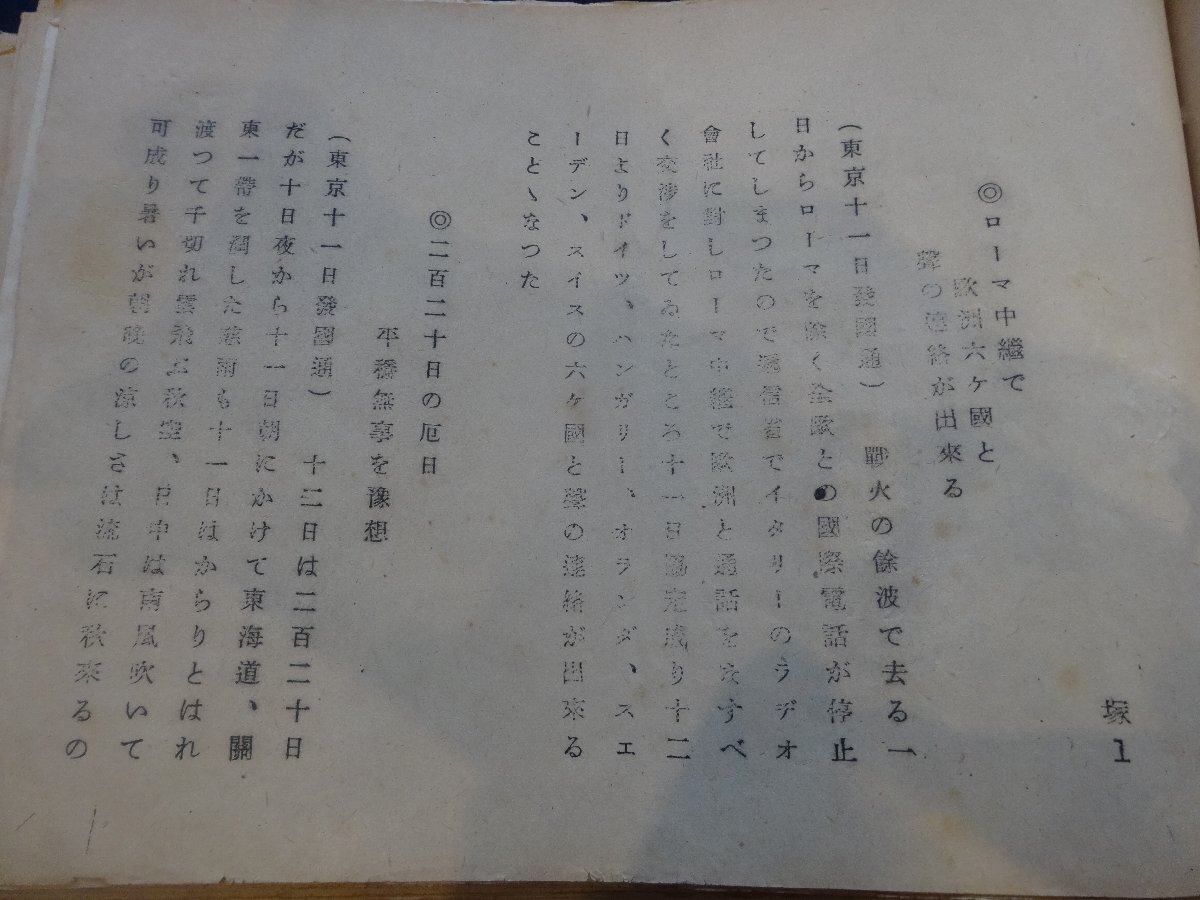 塚1
◎ローマ中繼で
歐洲六ケ國と
聲の連絡が出來る
(東京十一日發國通) 戰火の餘波で去る一
日からローマを除く全歐との國際電話が停止
してしまつたので遞信省でイタリーのラヂオ
會社に對しローマ中繼で歐洲と通話をなすべ
く交渉をしてゐたところ十一日協定成り十二
日よりドイツ、ハンガリー、オランダ、スエ
ーデン、スイスの六ケ國と聲の連絡が出來る
ことゝなつた
◎二百二十日の厄日
平穩無事を豫想
(東京十一日發國通) 十二日は二百二十日
だが十日夜から十一日朝にかけて東海道、關
東一帶を潤した慈雨も十一日はからりとはれ
渡つて千切れ雲飛ぶ秋空、日中は南風吹いて
可成り暑いが朝晩の涼しさは流石に秋來るの